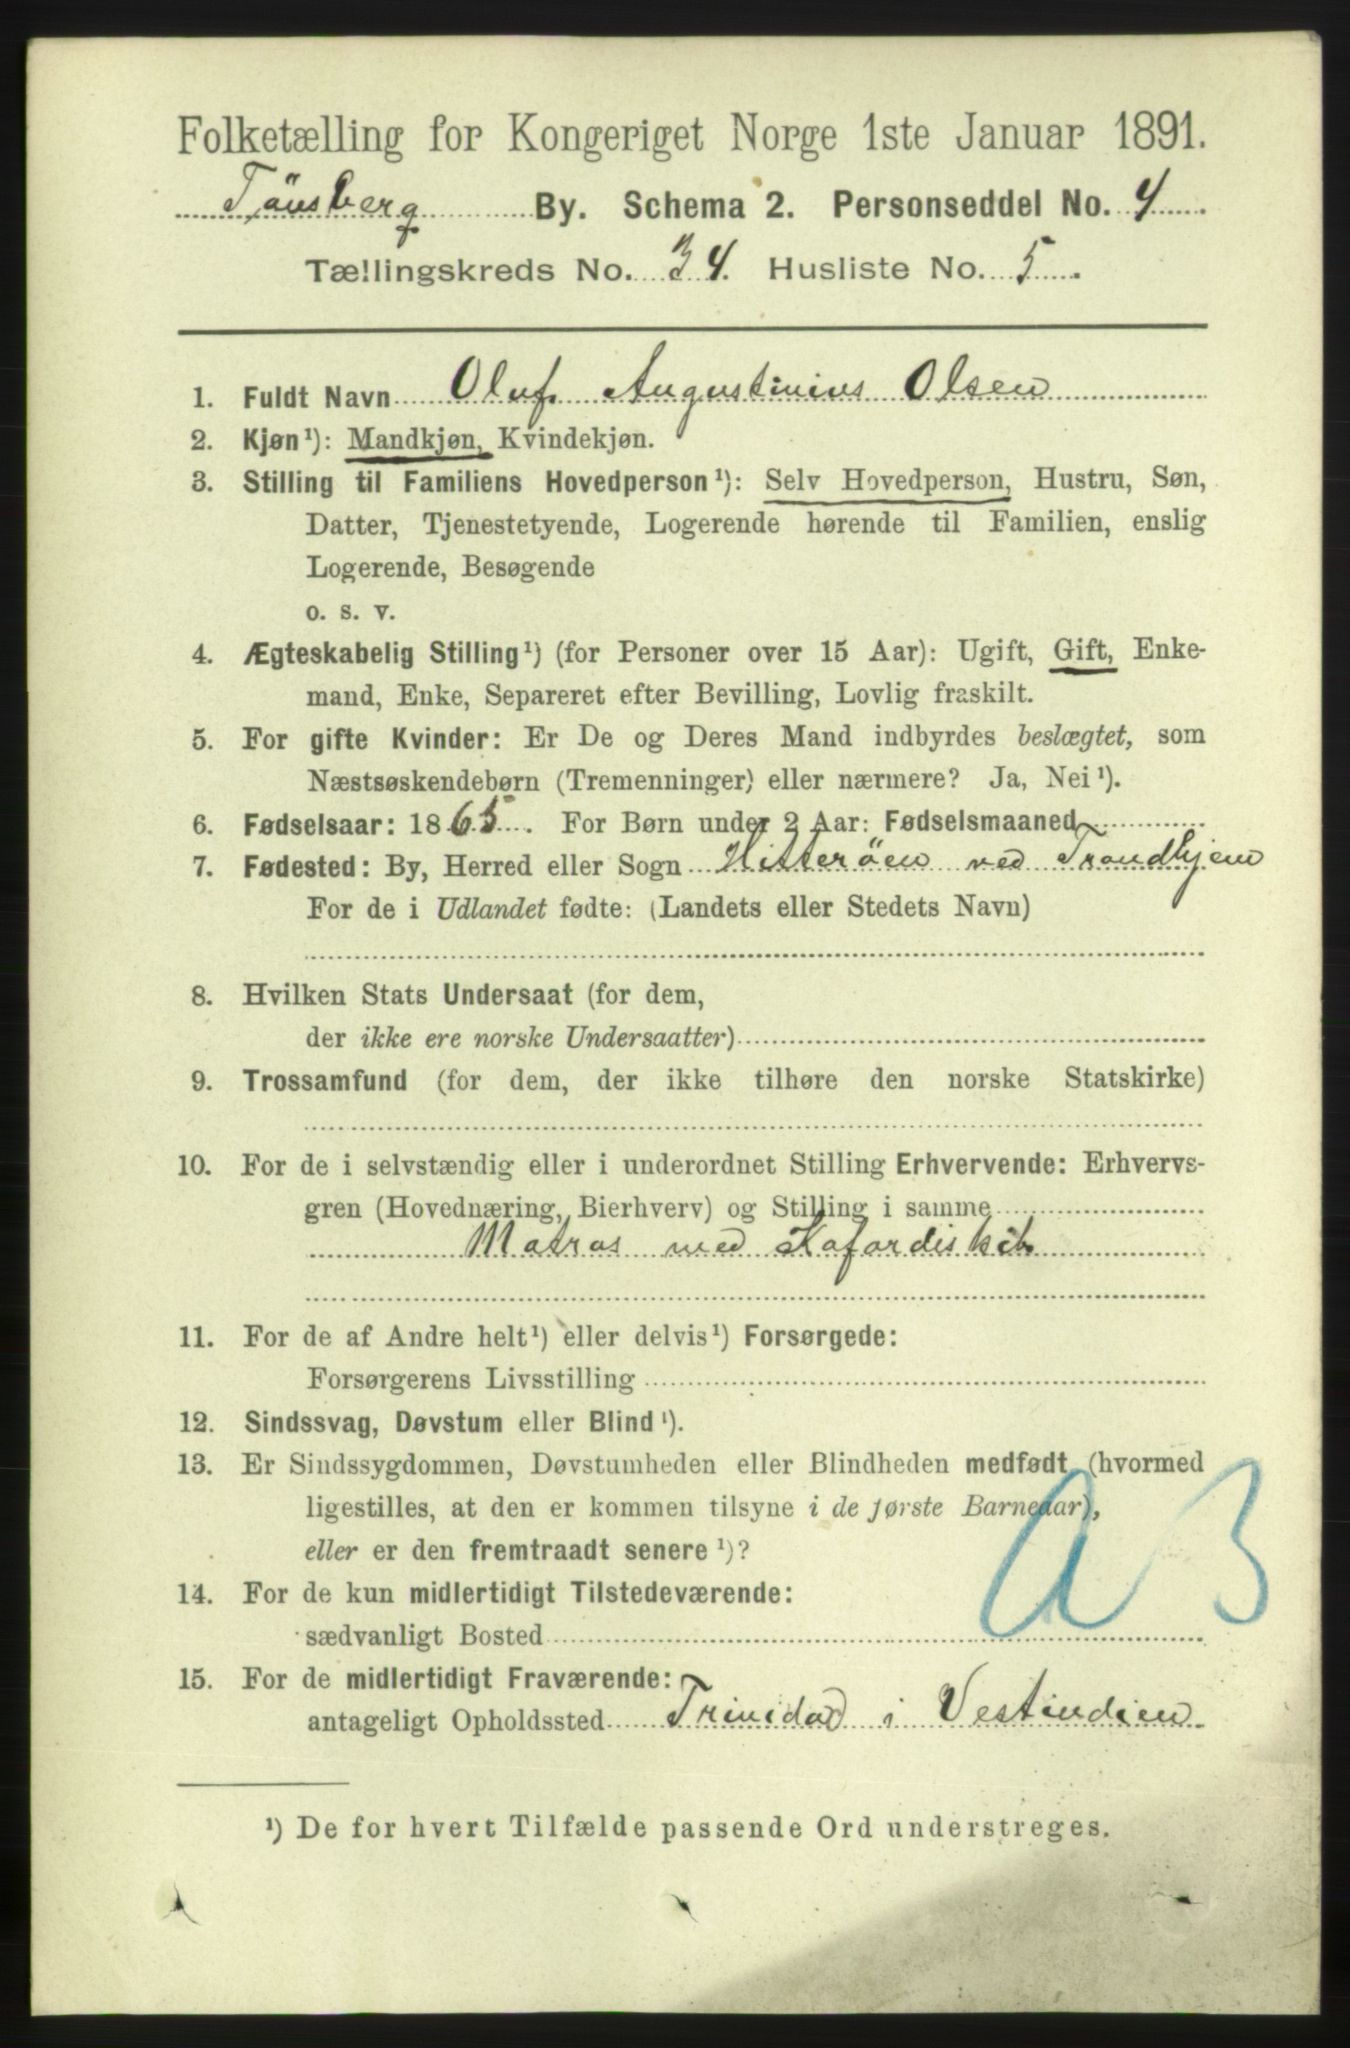 Folketælling for Kongeriget Norge 1ste Januar 1891.
Tönsberg By. Schema 2. Personseddel No. 4
Tællingskreds No. 34. Husliste No. 5.
1. Fuldt Navn Oluf Augustinius Olsen
2. Kjøn¹): Mandkjøn, Kvindekjøn.
3. Stilling til Familiens Hovedperson¹): Selv Hovedperson, Hustru, Søn,
Datter, Tjenestetyende, Logerende hørende til Familien, enslig
Logerende, Besøgende
o. s. v.
4. Ægteskabelig Stilling¹) (for Personer over 15 Aar): Ugift, Gift, Enke-
mand, Enke, Separeret efter Bevilling, Lovlig fraskilt.
5. For gifte Kvinder: Er De og Deres Mand indbyrdes beslægtet, som
Næstsøskendebørn (Tremenninger) eller nærmere? Ja, Nei¹).
6. Fødselsaar: 1865. For Børn under 2 Aar: Fødselsmaaned
7. Fødested: By, Herred eller Sogn Hitteröen ved Trondhjem
For de i Udlandet fødte: (Landets eller Stedets Navn)
8. Hvilken Stats Undersaat (for dem,
der ikke ere norske Undersaatter)
9. Trossamfund (for dem, der ikke tilhøre den norske Statskirke)
10. For de i selvstændig eller i underordnet Stilling Erhvervende: Erhvervs-
gren (Hovednæring, Bierhverv) og Stilling i samme
Matros med Kofardiskib
11. For de af Andre helt¹) eller delvis¹) Forsørgede:
Forsørgerens Livsstilling
12. Sindssvag, Døvstum eller Blind¹).
13. Er Sindssygdommen, Døvstumheden eller Blindheden medfødt (hvormed
ligestilles, at den er kommen tilsyne i de første Barneaar),
eller er den fremtraadt senere¹)?
a 3
14. For de kun midlertidigt Tilstedeværende:
sædvanligt Bosted
15. For de midlertidigt Fraværende:
antageligt Opholdssted Trinidad i Vestindien
¹) De for hvert Tilfælde passende Ord understreges.